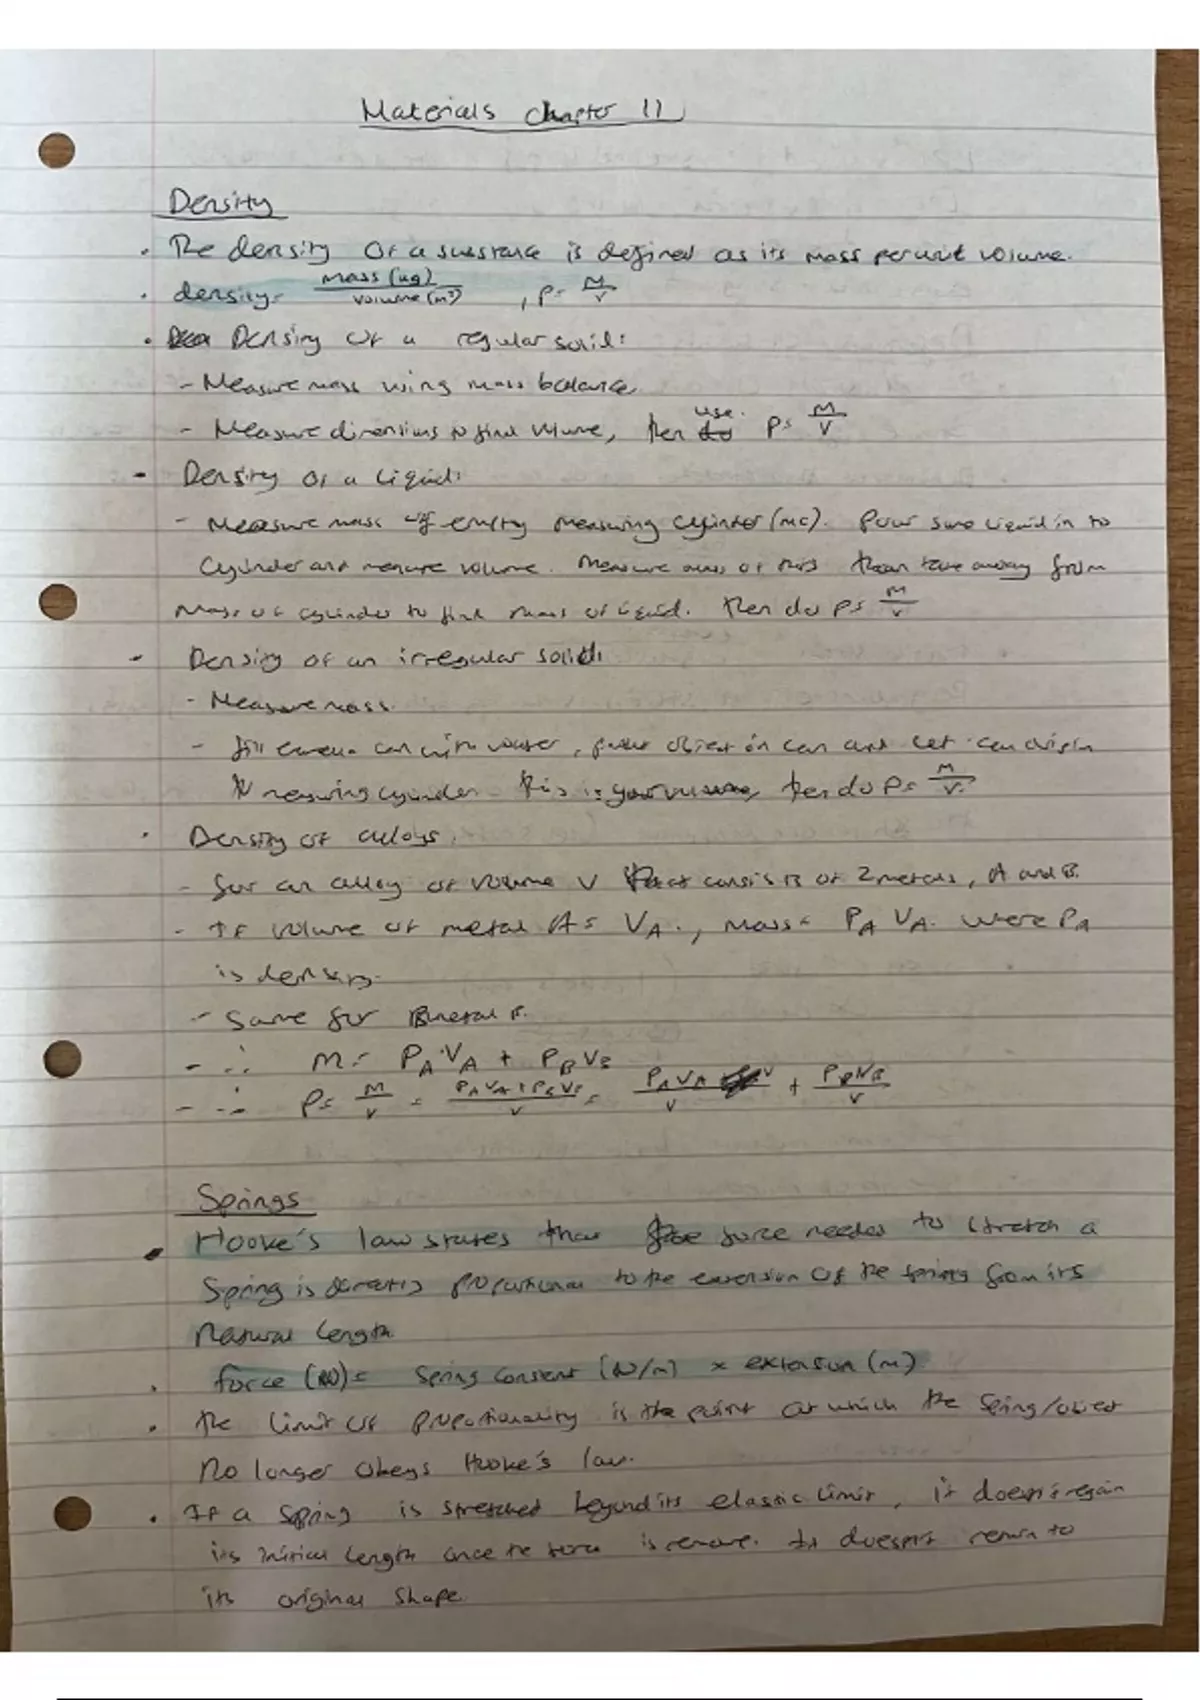 Materials Chapter 11
Density
• The density of a substance is defined as its mass per unit volume.
• density = mass (kg) / volume (m³) , ρ = M/V
• Density of a regular solid:
- Measure mass using mass balance.
- Measure dimensions to find volume, then use ρ = M/V
- Density of a liquid:
- Measure mass of empty measuring cylinder (mc). Pour some liquid in to
cylinder and measure volume. Measure mass of this then take away from
mass of cylinder to find mass of liquid. Then do ρ = M/V
- Density of an irregular solid:
- Measure mass.
- fill eureka can with water, put object in can and let can drain
measuring cylinder. This is your volume, then do ρ = M/V.
• Density of alloys.
- for an alloy of volume V that consists of 2 metals, A and B.
- If volume of metal A = VA., mass = ρA VA. where ρA
is density.
- Same for metal B.
- ∴ m = ρA VA + ρB VB
- ∴ ρ = M/V = ρA VA + ρB VB / V = ρA VA / V + ρB VB / V
Springs
• Hooke's law states that force needed to stretch a
Spring is directly proportional to the extension of the spring from its
natural length
• force (N) = spring constant (N/m) × extension (m)
• The limit of proportionality is the point at which the spring/object
no longer obeys Hooke's law.
• If a spring is stretched beyond its elastic limit, it doesn't regain
its initial length once the force is remove. It doesn't return to
its original shape.